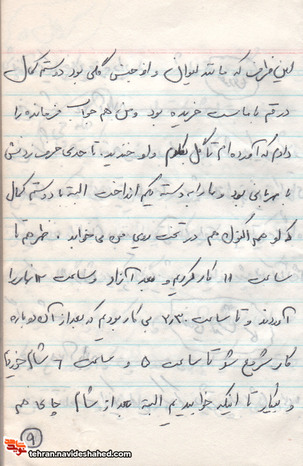 این ظرف که مانند لیوان و از جنس گلی بود دوستم کمال
در قم با ماست خریده بود و من هم جواب فرمانده را
دادم که آورده‌ام تا گل و او خندید. تا حدی حرف زدنش
با مهربانی بود و ما را به دسته یکم انداخت البته با دوستم کمال
که او هم اکنون هم در تخت روی من می‌خوابد. خیر هم تا
ساعت ۱۱ کار کردیم و بعد آزاد و ساعت ۱۲ نهار را
آوردند و تا ساعت ۲/۳۰ بی‌کار بودیم که بعد از آن دوباره
کار شروع شد تا ساعت ۵ و ساعت ۶ شام خوردیم
و بیکار تا اینکه خوابیدیم البته بعد از شام چای هم
۹
tehran.navideshahed.com